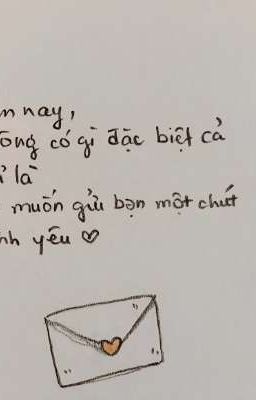 nay,
có gì đặc biệt cả
là
muốn gửi bạn một chút
yêu ♡